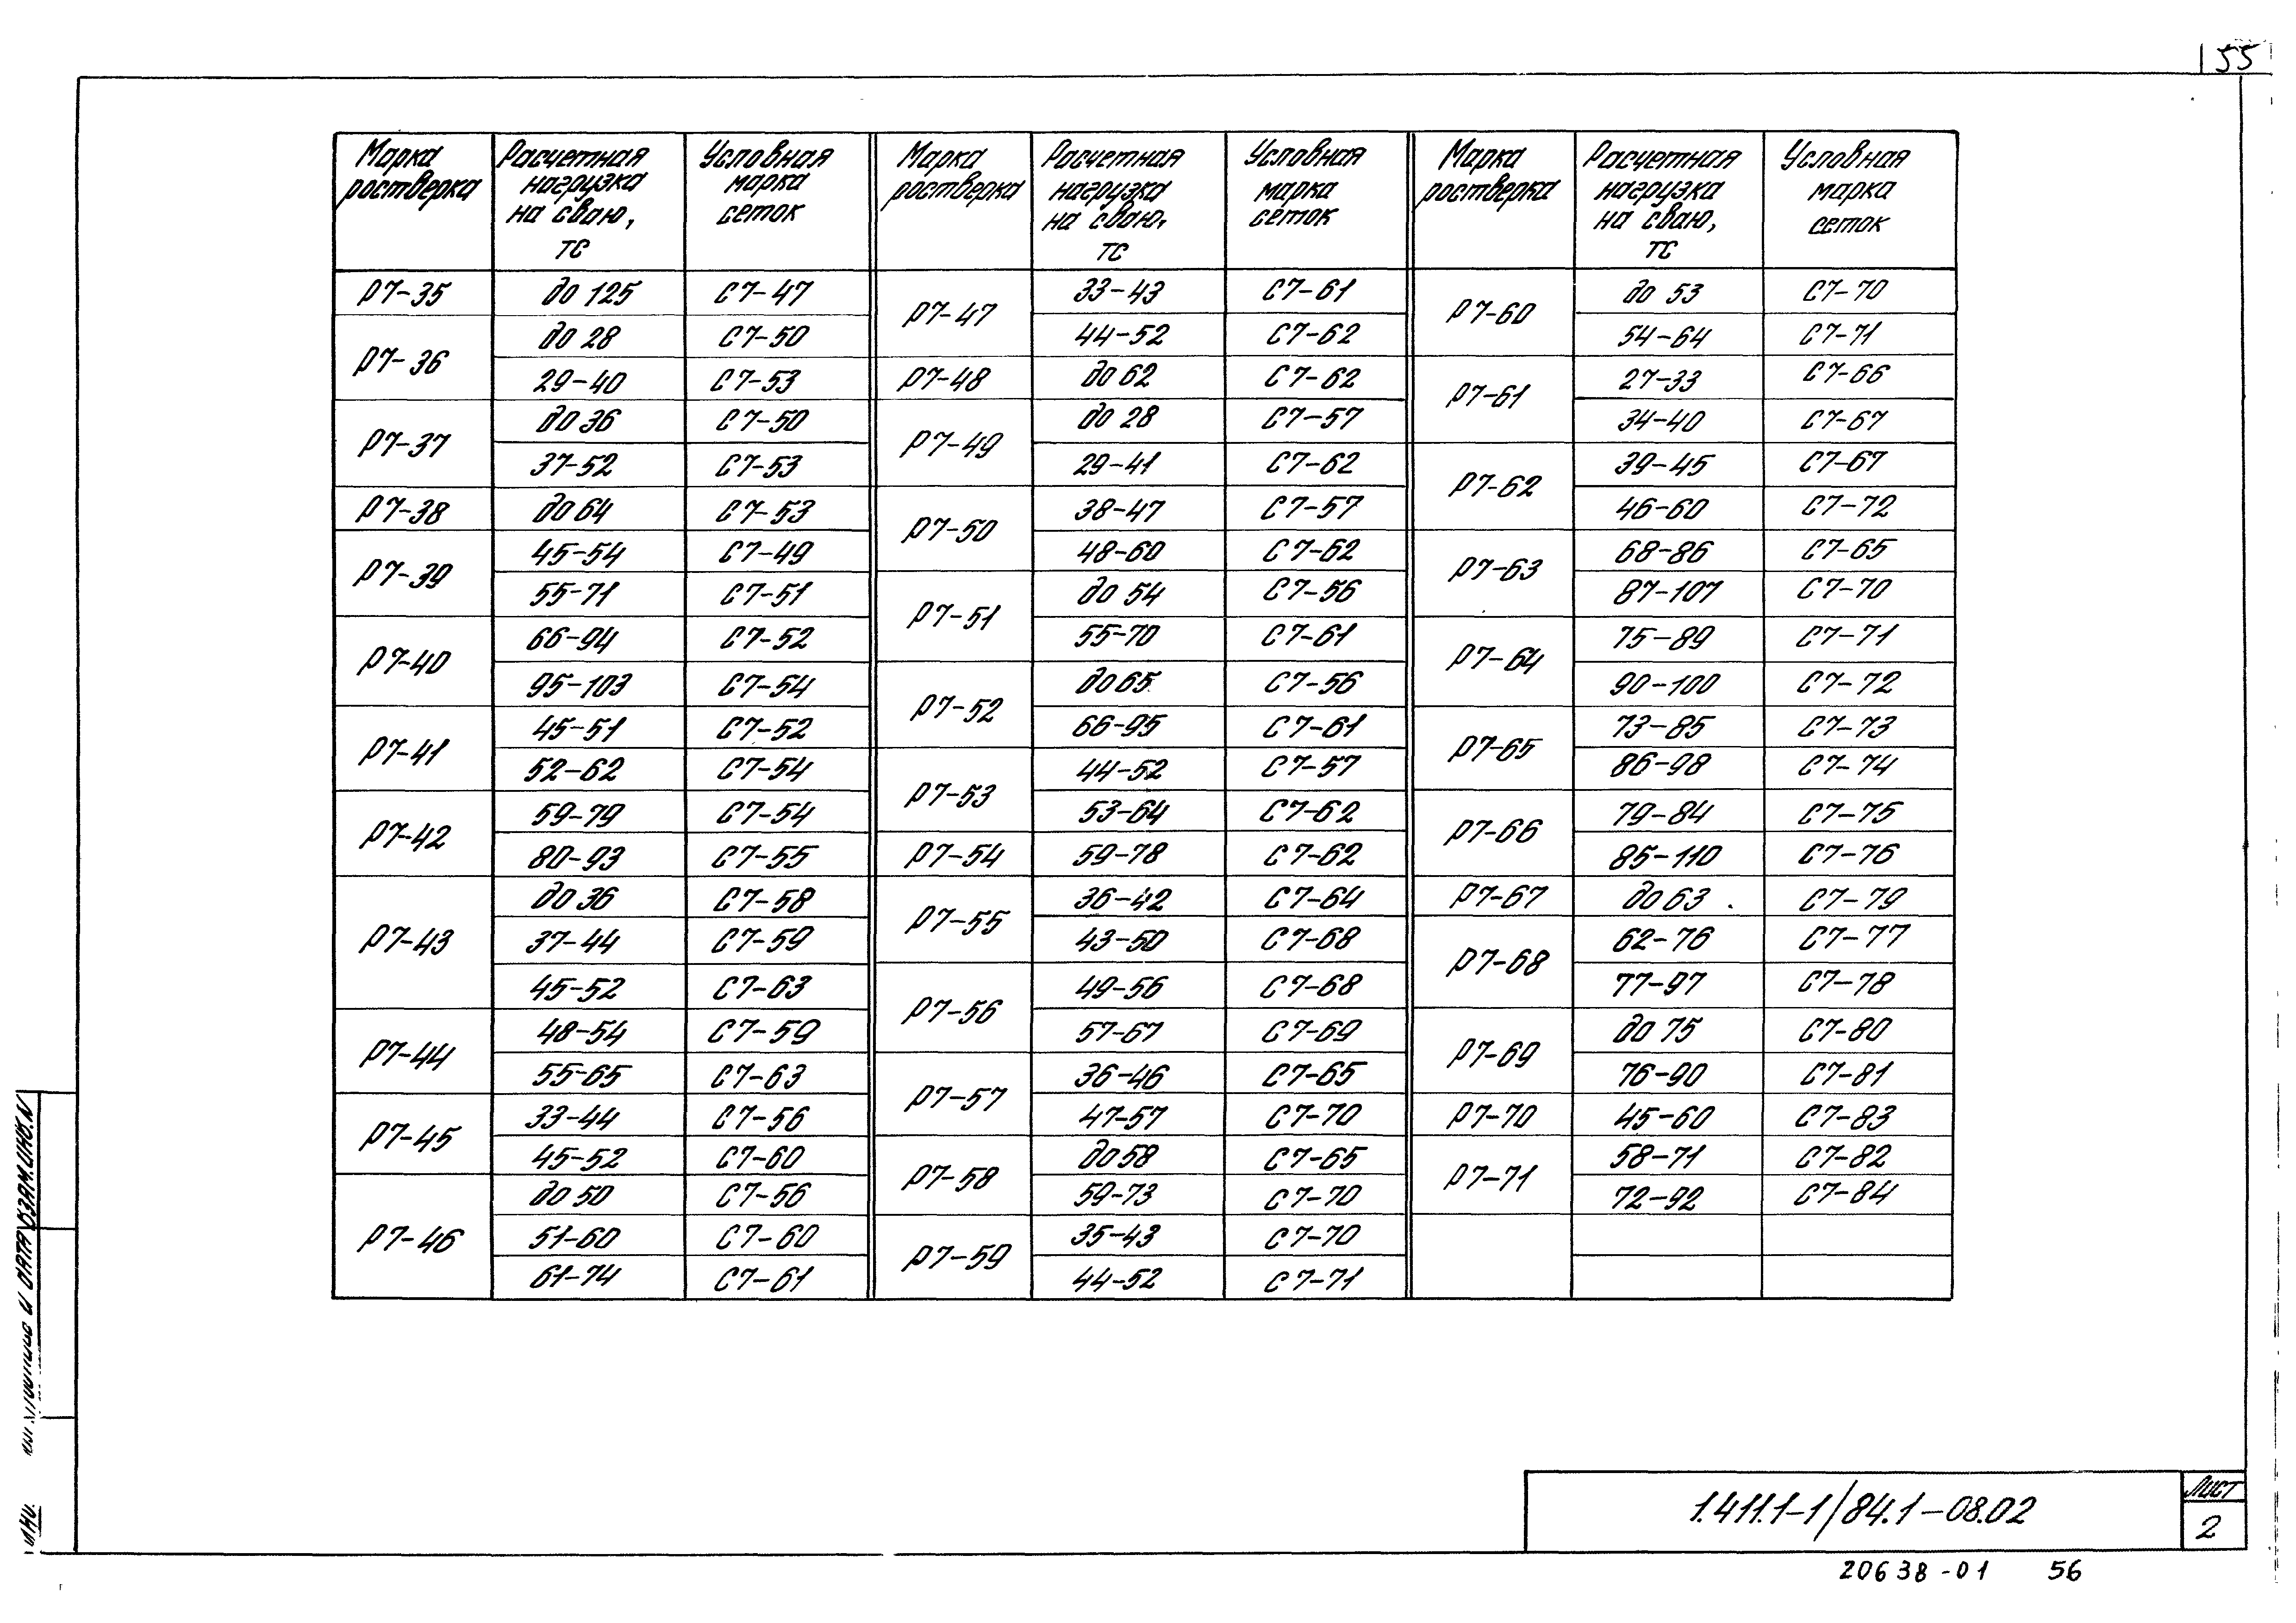 55
Марка ростверка | Расчетная нагрузка на сваю, тс | Условная марка сеток | Марка ростверка | Расчетная нагрузка на сваю, тс | Условная марка сеток | Марка ростверка | Расчетная нагрузка на сваю, тс | Условная марка сеток
Р7-35 | до 125 | С7-47 | Р7-47 | 33-43 | С7-61 | Р7-60 | до 53 | С7-70
Р7-36 | до 28 | С7-50 | | 44-52 | С7-62 | | 54-64 | С7-71
| 29-40 | С7-53 | Р7-48 | до 62 | С7-62 | Р7-61 | 27-33 | С7-66
Р7-37 | до 36 | С7-50 | Р7-49 | до 28 | С7-57 | | 34-40 | С7-67
| 37-52 | С7-53 | | 29-41 | С7-62 | Р7-62 | 39-45 | С7-67
Р7-38 | до 64 | С7-53 | Р7-50 | 38-47 | С7-57 | | 46-60 | С7-72
Р7-39 | 45-54 | С7-49 | | 48-60 | С7-62 | Р7-63 | 68-86 | С7-65
| 55-71 | С7-51 | Р7-51 | до 54 | С7-56 | | 87-107 | С7-70
Р7-40 | 66-94 | С7-52 | | 55-70 | С7-61 | Р7-64 | 75-89 | С7-71
| 95-103 | С7-54 | Р7-52 | до 65 | С7-56 | | 90-100 | С7-72
Р7-41 | 45-51 | С7-52 | | 66-95 | С7-61 | Р7-65 | 73-85 | С7-73
| 52-62 | С7-54 | Р7-53 | 44-52 | С7-57 | | 86-98 | С7-74
Р7-42 | 59-79 | С7-54 | | 53-64 | С7-62 | Р7-66 | 79-84 | С7-75
| 80-93 | С7-55 | Р7-54 | 59-78 | С7-62 | | 85-110 | С7-76
Р7-43 | до 36 | С7-58 | Р7-55 | 36-42 | С7-64 | Р7-67 | до 63 | С7-79
| 37-44 | С7-59 | | 43-50 | С7-68 | Р7-68 | 62-76 | С7-77
| 45-52 | С7-63 | Р7-56 | 49-56 | С7-68 | | 77-97 | С7-78
Р7-44 | 48-54 | С7-59 | | 57-67 | С7-69 | Р7-69 | до 75 | С7-80
| 55-65 | С7-63 | Р7-57 | 36-46 | С7-65 | | 76-90 | С7-81
Р7-45 | 33-44 | С7-56 | | 47-57 | С7-70 | Р7-70 | 45-60 | С7-83
| 45-52 | С7-60 | Р7-58 | до 58 | С7-65 | Р7-71 | 58-71 | С7-82
Р7-46 | до 50 | С7-56 | | 59-73 | С7-70 | | 72-92 | С7-84
| 51-60 | С7-60 | Р7-59 | 35-43 | С7-70
| 61-74 | С7-61 | | 44-52 | С7-71
1.411.1-1/84.1-08.02
Лист
2
20638-01 56